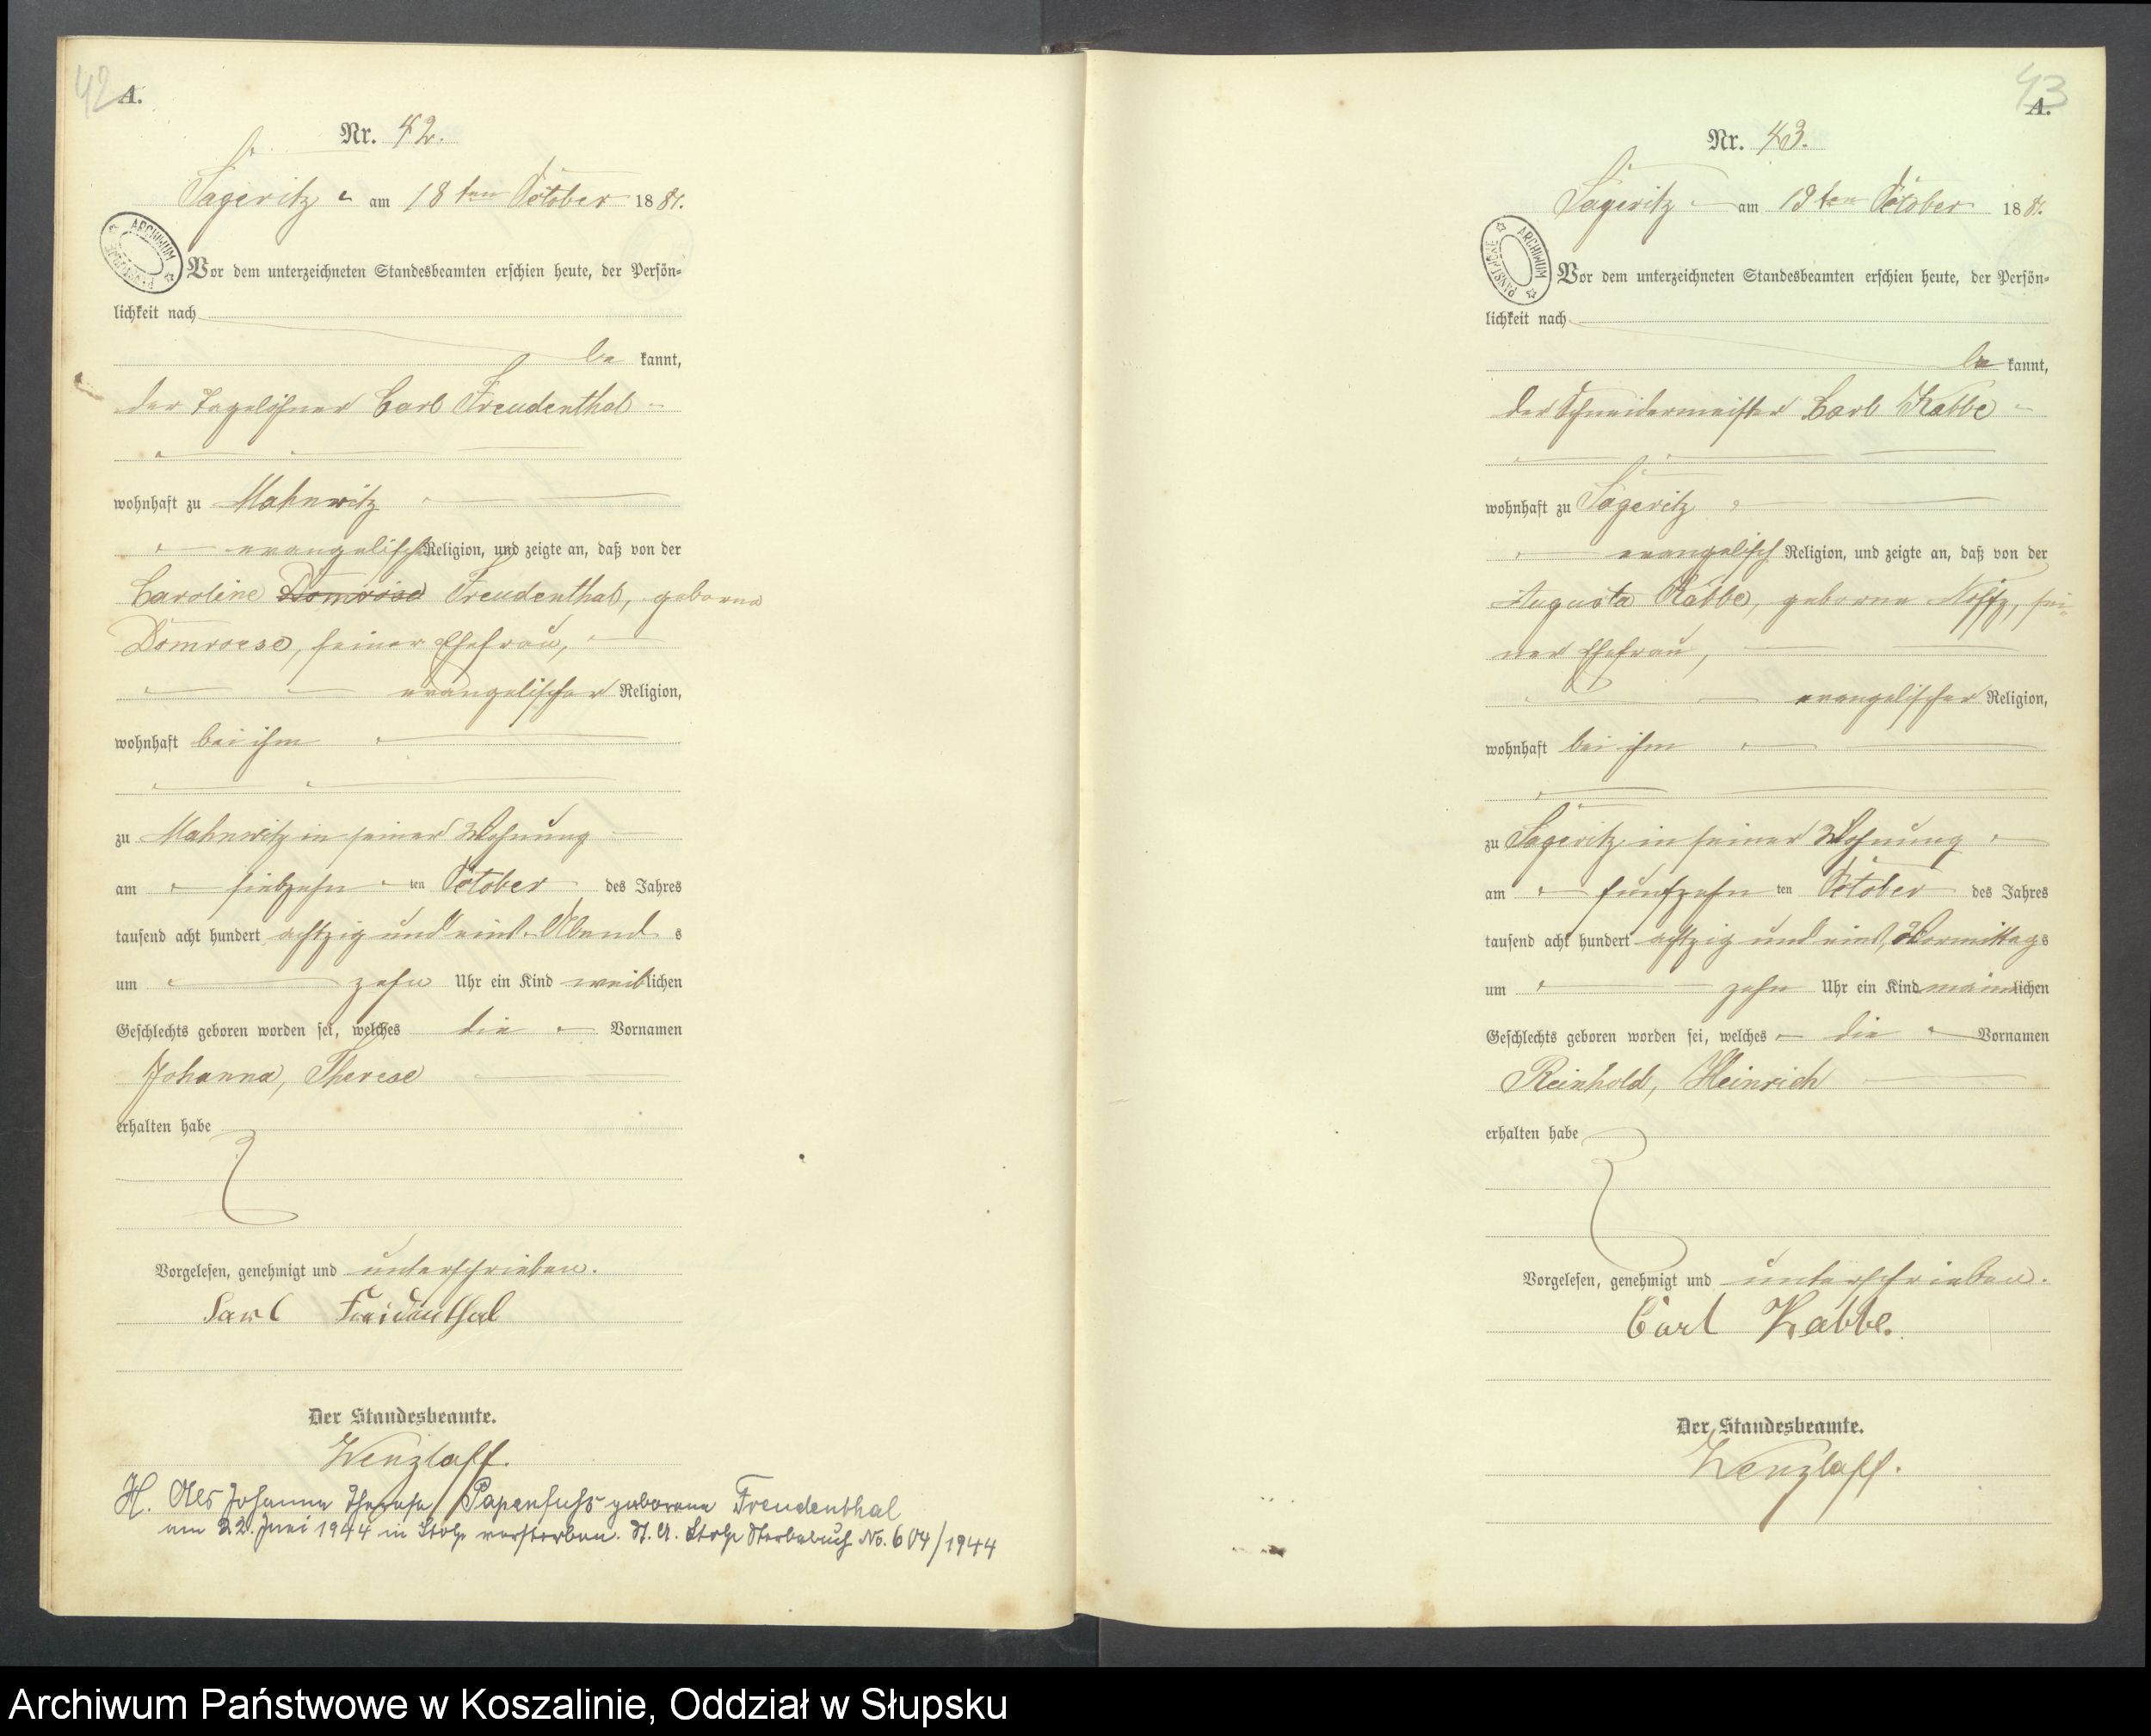 42
A.
Nr. 42.
Sageritz am 18ten October 1881.
ARCHIWUM PAŃSTWOWE
Vor dem unterzeichneten Standesbeamten erschien heute, der Persön-
lichkeit nach
be kannt,
der Tagelöhner Carl Freudenthal
wohnhaft zu Mahnwitz
evangelisch Religion, und zeigte an, daß von der
Caroline Domröse Freudenthal, geborne
Domroese, seiner Ehefrau,
evangelischer Religion,
wohnhaft bei ihm
zu Mahnwitz in seiner Wohnung
am siebzehn ten October des Jahres
tausend acht hundert achtzig und eins Abend s
um zehn Uhr ein Kind weiblichen
Geschlechts geboren worden sei, welches die Vornamen
Johanna, Therese
erhalten habe
Vorgelesen, genehmigt und unterschrieben.
Carl Freidenthal
Der Standesbeamte.
Wenzlaff.
H. Als Johanna Therese Papenfuhs geborene Freudenthal
am 22. Juni 1944 in Stolp verstorben. St. A. Stolp Sterbebuch No. 604/1944
43
A.
Nr. 43.
Sageritz am 19ten October 1881.
ARCHIWUM PAŃSTWOWE
Vor dem unterzeichneten Standesbeamten erschien heute, der Persön-
lichkeit nach
be kannt,
der Schneidermeister Carl Kabbe
wohnhaft zu Sageritz
evangelisch Religion, und zeigte an, daß von der
Augusta Kabbe, geborne Noffz, sei-
ner Ehefrau,
evangelischer Religion,
wohnhaft bei ihm
zu Sageritz in seiner Wohnung
am fünfzehn ten October des Jahres
tausend acht hundert achtzig und eins, Vormittags
um zehn Uhr ein Kind männlichen
Geschlechts geboren worden sei, welches die Vornamen
Reinhold, Heinrich
erhalten habe
Vorgelesen, genehmigt und unterschrieben.
Carl Kabbe.
Der Standesbeamte.
Wenzlaff.
Archiwum Państwowe w Koszalinie, Oddział w Słupsku